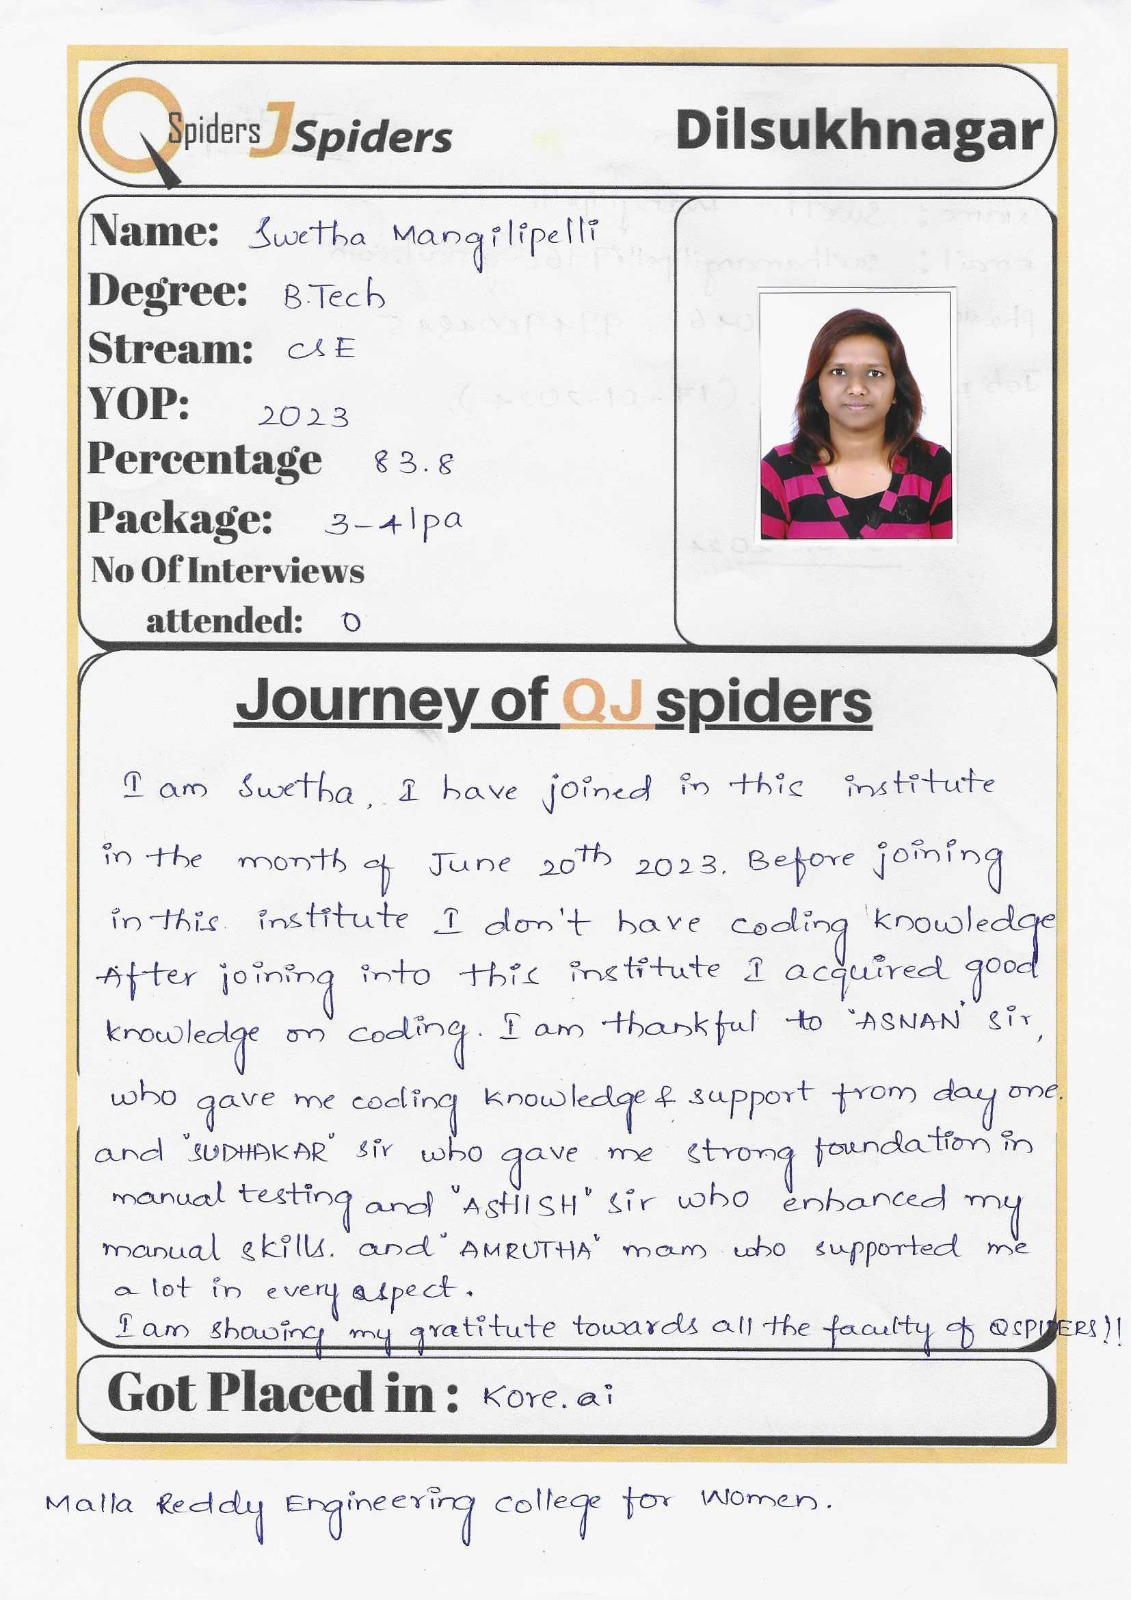 QSpiders JSpiders
Dilsukhnagar
Name: Swetha Mangilipelli
Degree: B.Tech
Stream: CSE
YOP: 2023
Percentage 83.8
Package: 3-4lpa
No Of Interviews
attended: 0
Journey of QJ spiders
I am Swetha, I have joined in this institute
in the month of June 20th 2023. Before joining
in this institute I don't have coding knowledge
After joining into this institute I acquired good
knowledge on coding. I am thankful to "ASNAN" sir,
who gave me coding knowledge & support from day one.
and "SUDHAKAR" sir who gave me strong foundation in
manual testing and "ASHISH" sir who enhanced my
manual skills. and "AMRUTHA" mam who supported me
a lot in every aspect.
I am showing my gratitute towards all the faculty of QSPIDERS)!!
Got Placed in : Kore.ai
Malla Reddy Engineering college for Women.